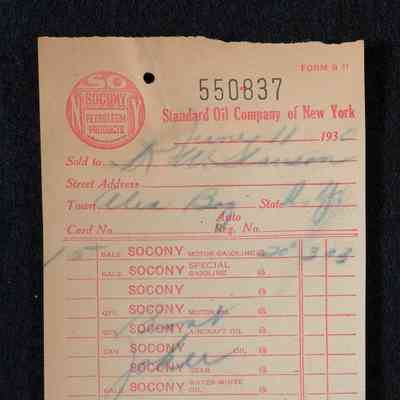 FORM G 11
SO
SOCONY
PETROLEUM
PRODUCTS
550837
Standard Oil Company of New York
June 11 1930
Sold to
Street Address
Town Alex Bay State N. Y.
Auto
Card No. Reg. No.
15 GALS SOCONY MOTOR GASOLINE @ 20
GALS SOCONY SPECIAL GASOLINE @
SOCONY
QTS. SOCONY MOTOR OIL @
QTS. SOCONY AIRCRAFT OIL @
CAN SOCONY OIL @
SOCONY GEAR @
GAL SOCONY WATER WHITE OIL @